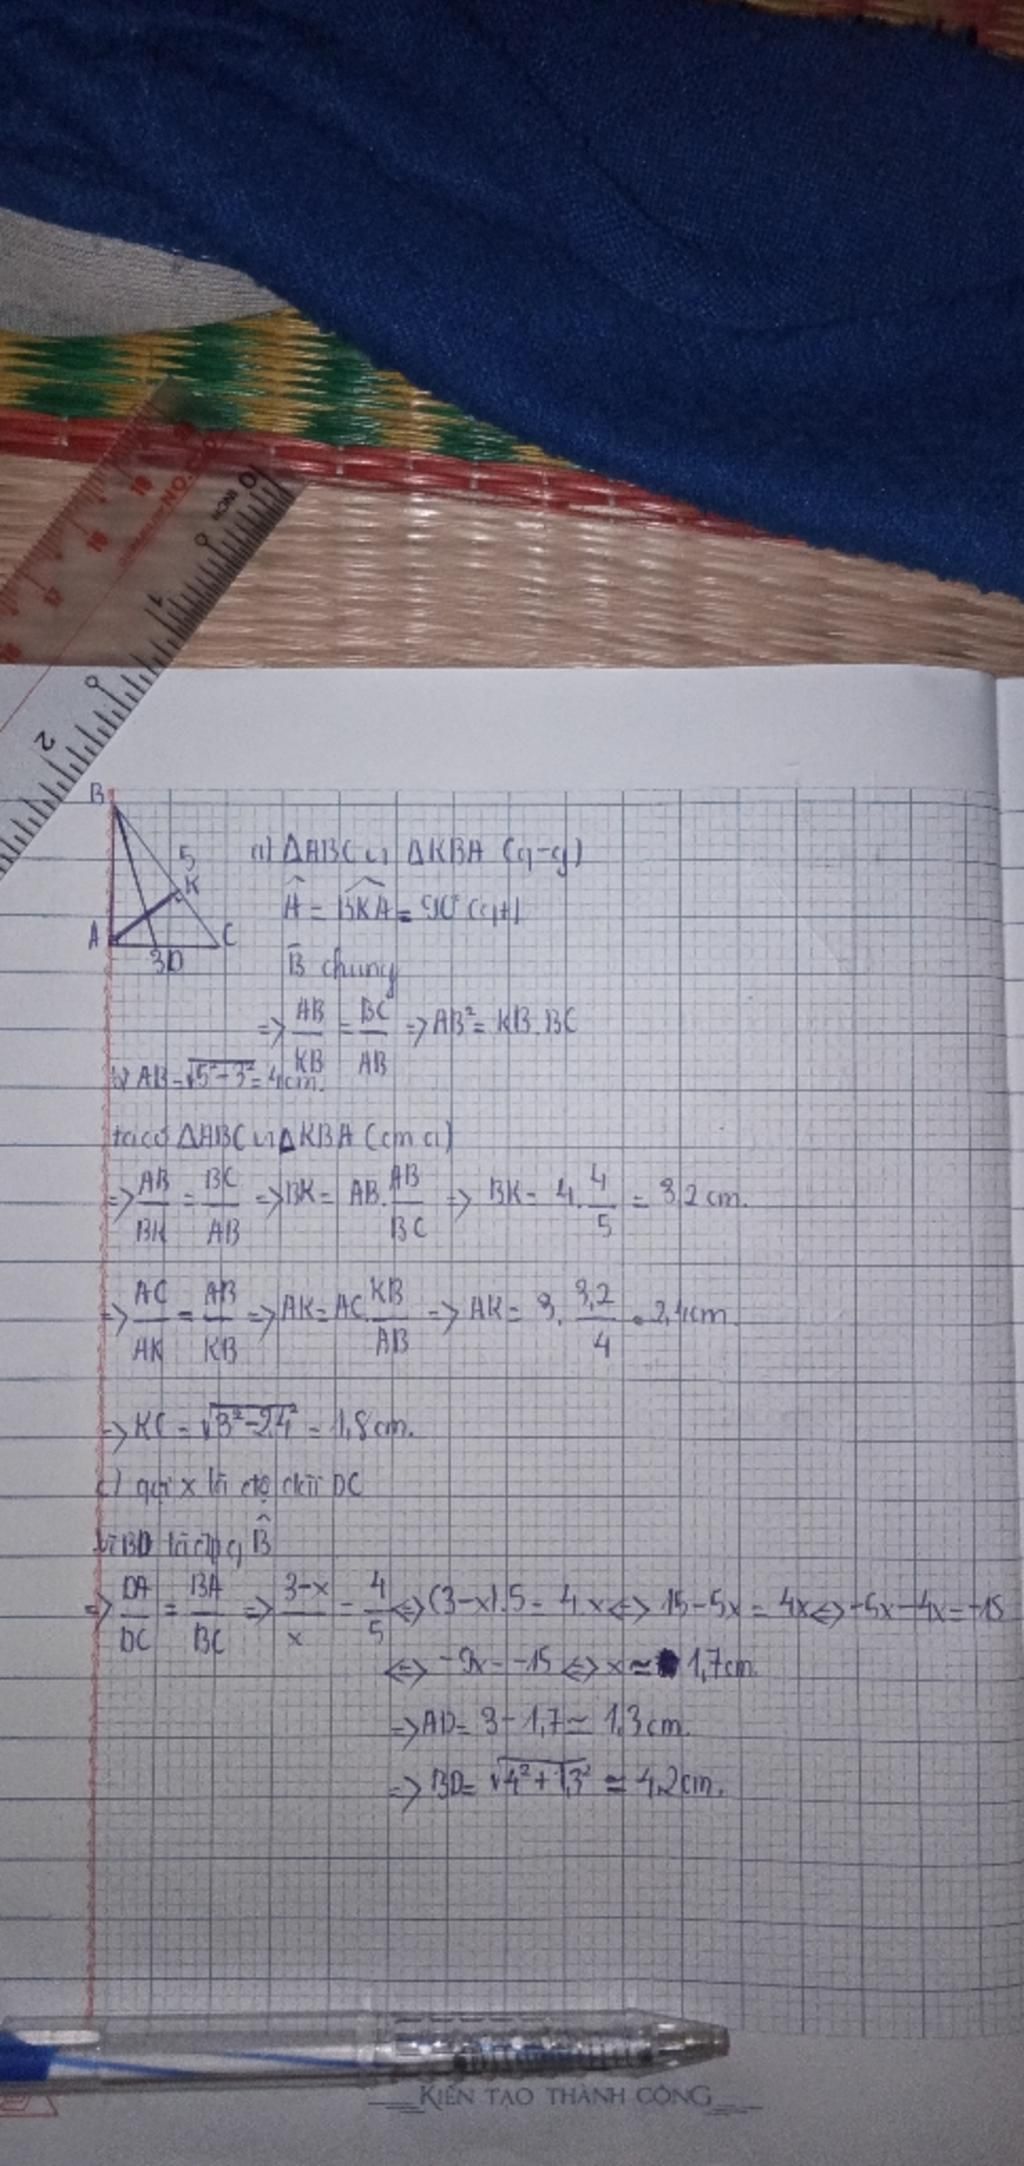 0 INCH
1
2
B
5
K
A
3D
C
a) ΔABC ∽ ΔKBA (g-g)
Â = BKA = 90° (gt)
B̂ chung
=> AB/KB = BC/AB => AB² = KB.BC
b) AB = √5²-3² = 4cm.
ta có ΔABC ∽ ΔKBA (cm a)
=> AB/BK = BC/AB => BK = AB.AB/BC => BK = 4.4/5 = 3,2 cm.
=> AC/AK = AB/KB => AK = AC.KB/AB => AK = 3.3,2/4 = 2,4cm
=> KC = √3²-2,4² = 1,8cm.
c) gọi x là độ dài DC
Vì BD là B̂
=> DA/DC = BA/BC => 3-x/x = 4/5 <=> (3-x).5 = 4x <=> 15-5x = 4x <=> -5x-4x = -15
<=> -9x = -15 <=> x ≈ 1,7cm
=> AD = 3-1,7 ≃ 1,3cm.
=> BD = √4²+1,3² ≃ 4,2cm.
KIẾN TẠO THÀNH CÔNG